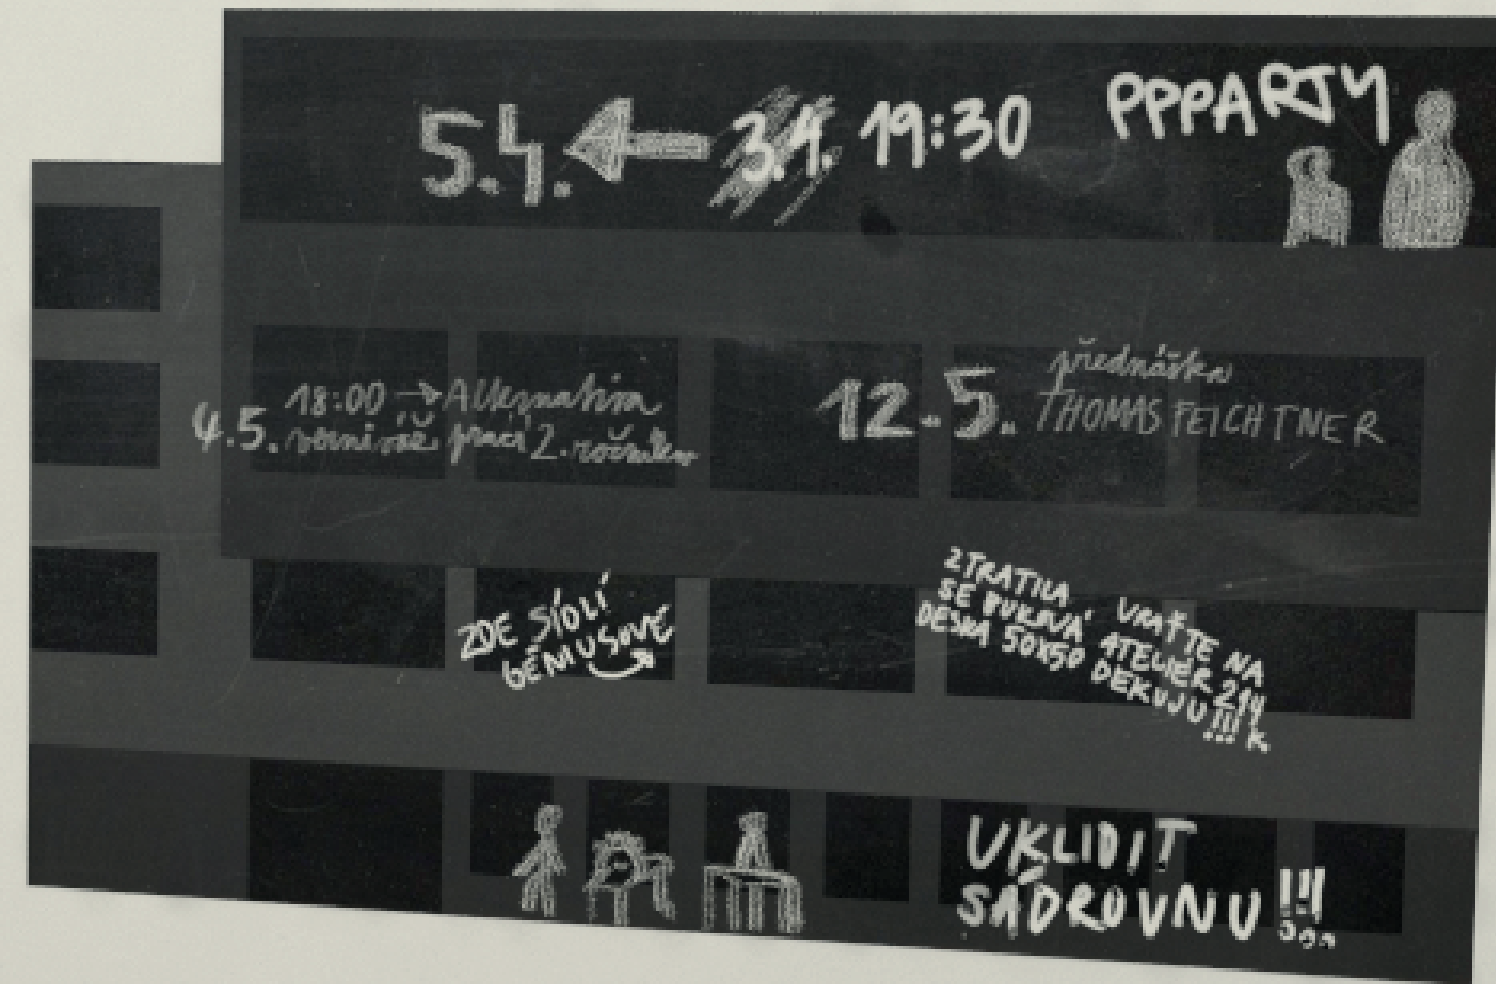 PPPARTY
5.4. ← 3.4. 19:30
18:00 → Alternativa
4.5. vernisáž prací 2. ročníku
12.5. přednáška
THOMAS FEICHTNER
ZDE SÍDLÍ
BÉMUSOVÉ
ZTRATILA
SE BUKOVÁ
DESKA 50x50
VRAŤTE NA
ATELIÉR 214
DEKUJU!!! K.
UKLIDIT
SÁDROVNU!!!